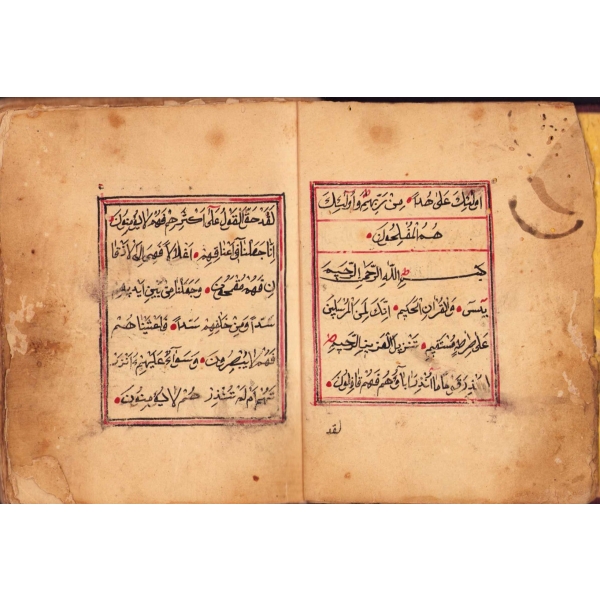 اولئك على هدا من ربهم واولئك
هم المفلحون
بسم الله الرحمن الرحيم
يس والقران الحكيم انك لمن المرسلين
على صراط مستقيم تنزيل العزيز الرحيم
لتنذر قوما ما انذر اباؤهم فهم غافلون
لقد
لقد حق القول على اكثرهم فهم لا يومنون
انا جعلنا في اعناقهم اغلالا فهي الى الاذقا
ن فهم مقمحون وجعلنا من بين ايديهم
سدا ومن خلفهم سدا فاغشيناهم
فهم لا يبصرون وسواء عليهم ءانذر
تهم ام لم تنذرهم لا يومنون